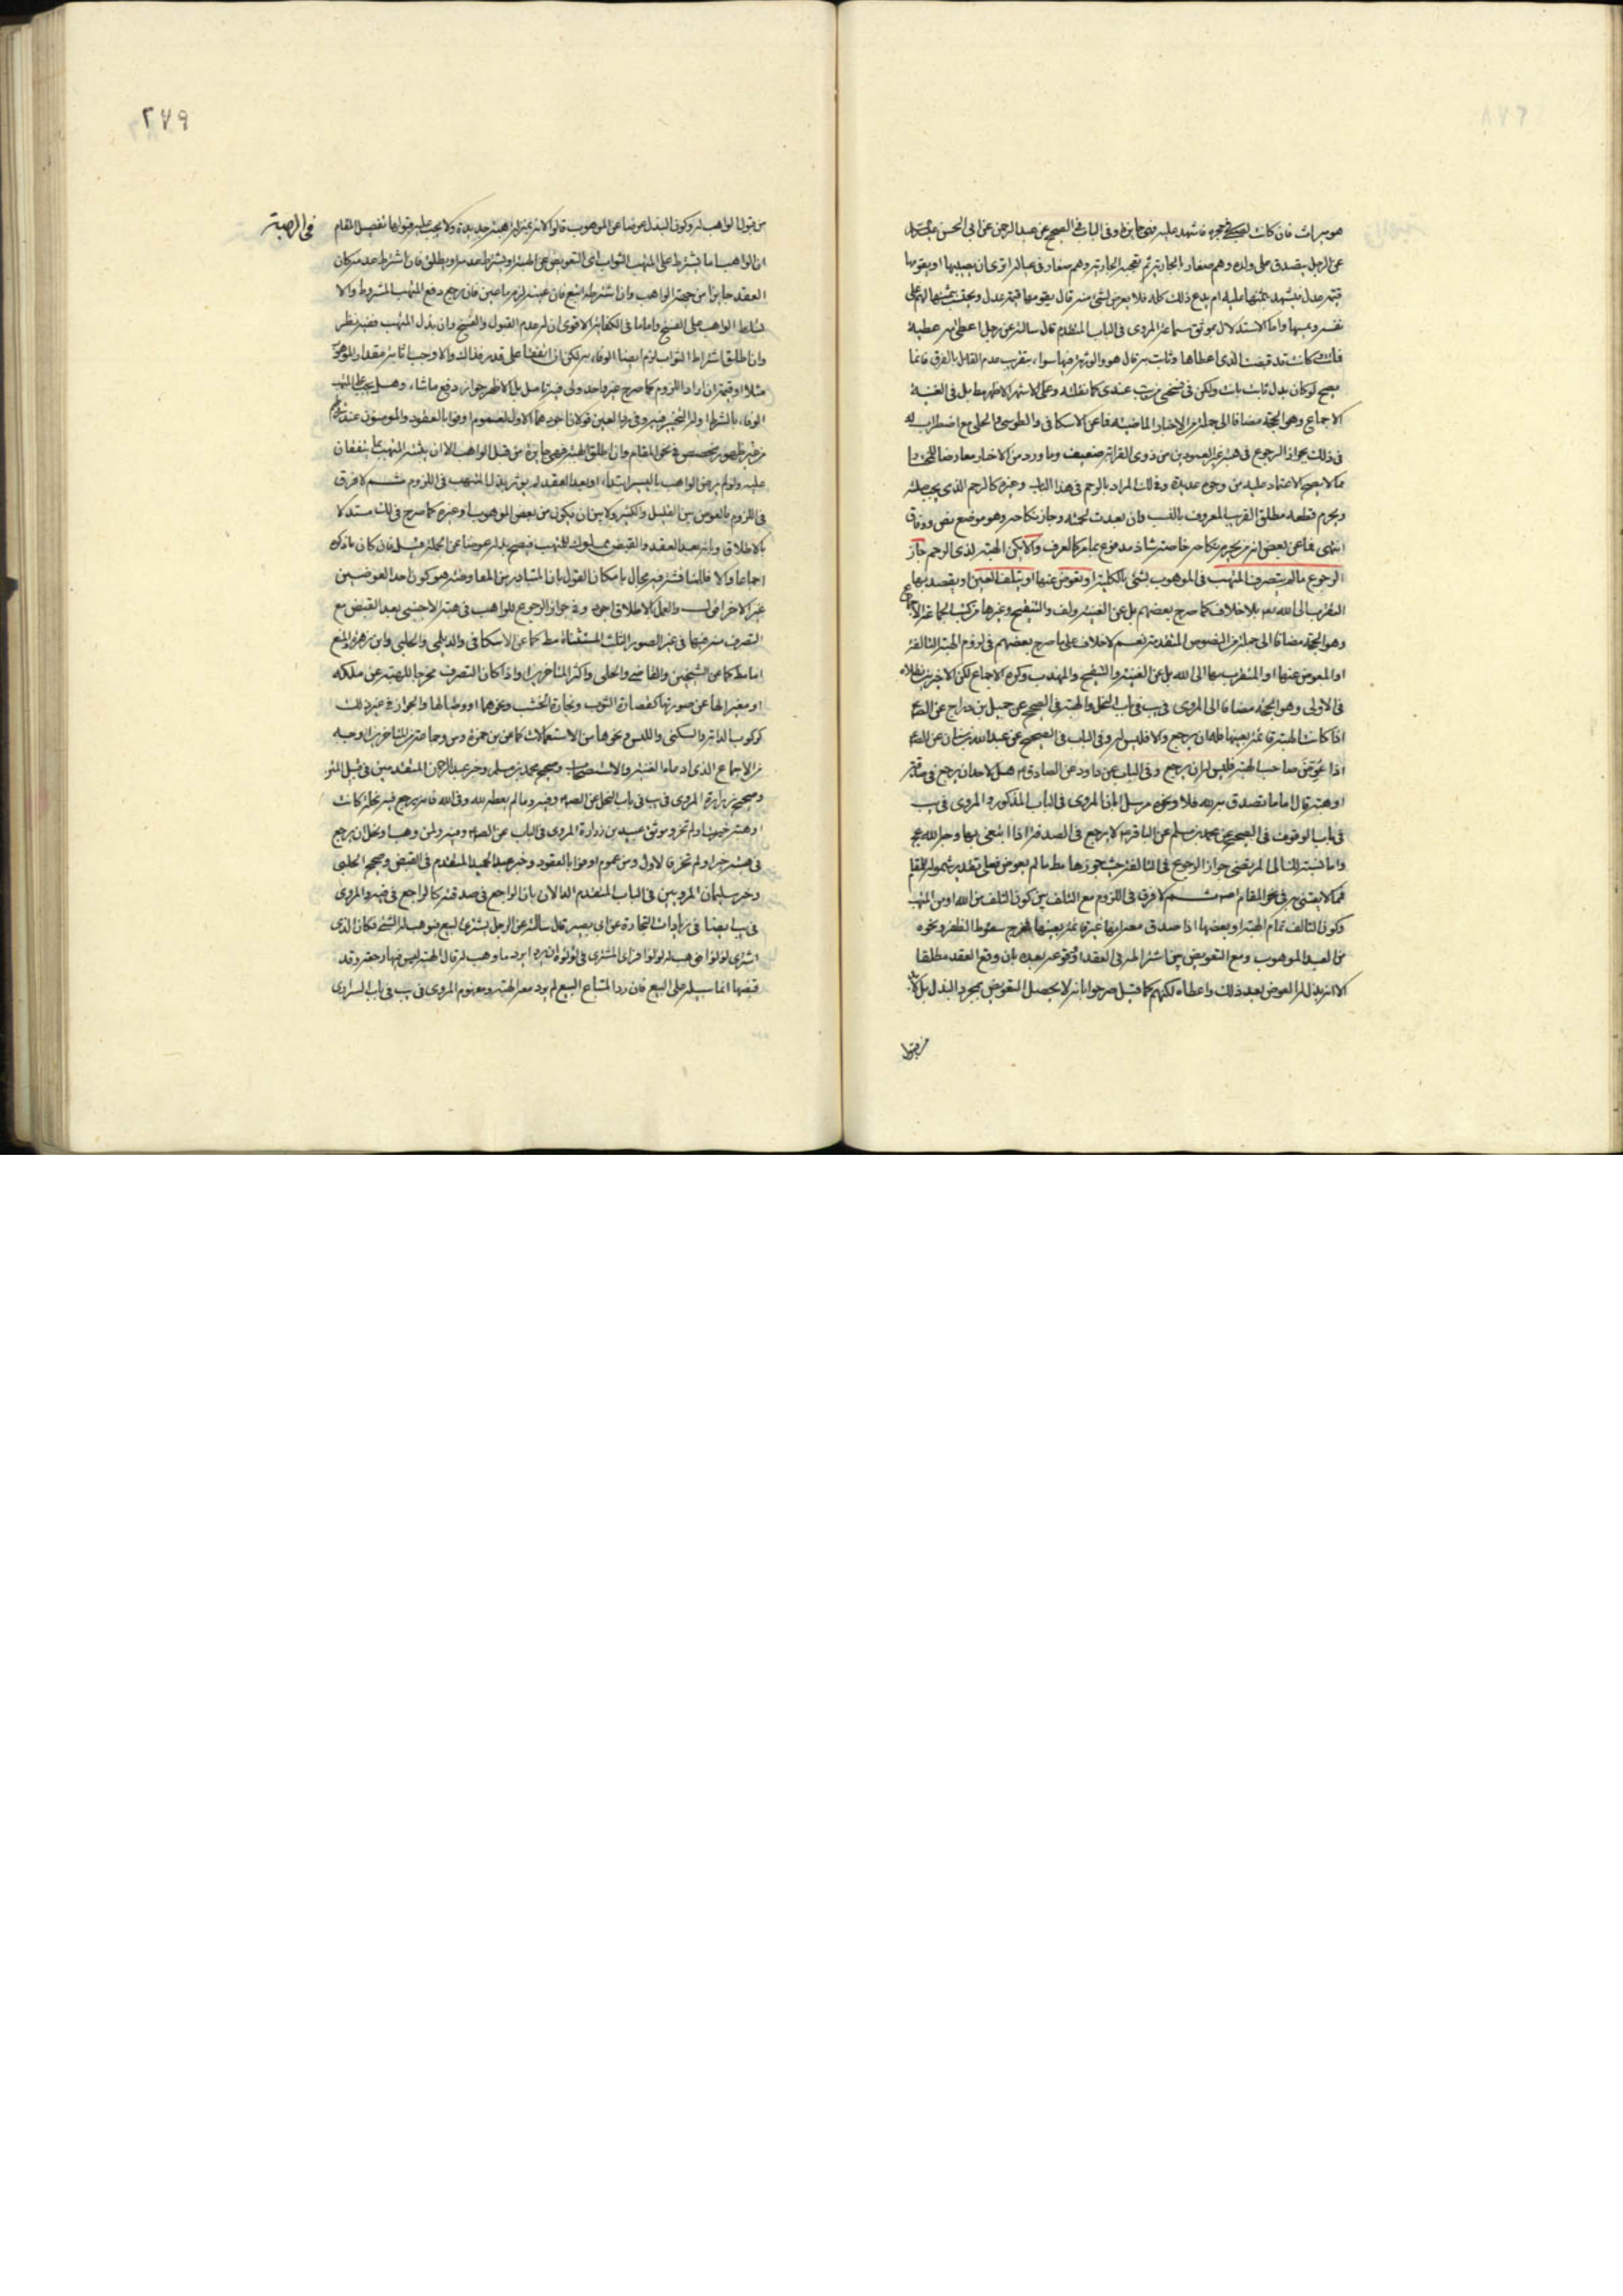 هو ميراث فان كانت لصبي في حجره فاشهد عليه فهي جايزة وفي الباب في الصحيح عن عبد الرحمن عن ابي الحسن
عن الرجل يتصدق على ولده وهم صغار بالجارية ثم تعجبه الجارية وهم صغار في عياله اترى ان يصيبها او يقومها
قيمة عدل فيشهد بثمنها عليه ام يدع ذلك كله فلا يعرض لشئ منه قال يقومها قيمة عدل ويحتسب بثمنها لهم على
نفسه ويمسها واما الاستدلال بموثق سماعة المروي في الباب المتقدم قال سالته عن رجل اعطى امه عطية
فماتت وكانت قد قبضت الذي اعطاها وبانت به قال هو والورثة فيها سواء بتقريب عدم القائل بالفرق فانما
يصح لو كان بدل بانت باب ولكن في نسختي من يب عندي كما نقلته وعلى الاشهر الاظهر مط بل في الغنية
الاجماع وهو الحجة مضافا الى جملة من الاخبار الماضية فما عن الاسكافي والطوسي والحلي مع اضطراب له
في ذلك بجواز الرجوع في هبة غير العمودين من ذوي القرابة ضعيف وما ورد من الاخبار معارضا للمختار
مما لا يصح الاعتماد عليه من وجوه عديدة وفي لك المراد بالرحم في هذا الباب وغيره كالرحم الذي يجب صلته
ويحرم قطعه مطلق القريب المعروف بالنسب وان بعدت لحمته وجاز نكاحه وهو موضع نص ووفاق
انتهى فما عن بعض انه من يحرم نكاحه خاصة شاذ مدفوع بما مر كالعرف والا يكن الهبة لذي الرحم جاز
الرجوع ما لم يتصرف المتهب في الموهوب بشئ بالكلية او يعوض عنها او يتلف العين او يقصد بها
التقرب الى الله تعالى بلا خلاف كما صرح بعضهم بل عن الغنية ولف والتنقيح وغيرها
وهو الحجة مضافا الى جملة من النصوص المتقدمة نعم لا خلاف على ما صرح بعضهم في لزوم الهبة التالفة
او المعوض عنها او المتقرب بها الى الله بل عن الغنية والتنقيح والمهذب وكره الاجماع لكن الاخيرين نقلاه
في الاولى وهو الحجة مضافا الى المروي في يب في باب النحل والهبة في الصحيح عن جميل بن دراج عن
اذا كانت الهبة قائمة بعينها فله ان يرجع والا فليس له وفي الباب في الصحيح عن عبد الله بن سنان عن
اذا عوض صاحب الهبة فليس له ان يرجع وفي الباب عن داود عن الصادق هل لاحد ان يرجع في صدقته
او هبته قال اما ما تصدق به لله فلا ونحوه مرسل ابان المروي في الباب المذكور والمروي في يب
في باب الوقوف في الصحيح عن محمد بن مسلم عن الباقر لا يرجع في الصدقة اذا ابتغى بها وجه الله عز
واما نسبة لك الى المرتضى جواز الرجوع في التالفة حيث جوزها مط ما لم يعوض فعلى تقدير شموله للمقام
فما لا يعتنى به في نحو المقام ثم لا فرق في اللزوم مع التلف بين كون التلف من الله او من المتهب
وكون التالف تمام الهبة او بعضها اذا صدق معه انها غير قائمة بعينها سقوط الظفر ونحوه
من العبد الموهوب ومع التعويض بين اشتراطه في العقد او وقوعه بعده بان وقع العقد مطلقا
الا انه بذل له العوض بعد ذلك واعطاه لكنهم كما قيل صرحوا بانه لا يحصل التعويض بمجرد البذل بل لا بد
من قبول
٢٧٩
في الهبة
من قبول الواهب له وكون البذل عوضا عن الموهوب قالوا لانه بمنزلة هبة جديدة ولا يجب عليه قبولها تفصيل المقام
ان الواهب اما يشترط على المتهب الثواب اعني التعويض عن الهبة او يشترط عدمه او يطلق فان اشترط عدمه كان
العقد جايزا من جهة الواهب واذا اشترطه اتبع فان عينه لزم ما عين فان رجع دفع المتهب المشروط والا
تسلط الواهب على الفسخ واما ما في الكفاية الاقوى ان له عدم القبول والفسخ وان بذل المتهب ففيه نظر
وان اطلق اشتراط الثواب لزم ايضا الوفاء به لكن ان اتفقا على قدر فذاك والا وجب اثابة مقدار الموهوب
مثلا او قيمة ان اراد اللزوم كما صرح غير واحد ولي فيه تامل بل الاظهر جواز دفع ما شاء وهل يجب على المتهب
الوفاء بالشرط او له التخيير فيه وفي رد العين قولان اجودهما الاول لعموم اوفوا بالعقود والمؤمنون عند شروطهم
من غير ظهور مخصص في نحو المقام وان اطلق الهبة فهي جايزة من قبل الواهب الا ان يثيبه المتهب بما يتفقان
عليه ولو لم يرض الواهب باليسير ابتداء او بعد العقد لم يؤثر بذل المتهب في اللزوم ثم لا فرق
في اللزوم بالعوض بين القليل والكثير ولا بين ان يكون من بعض الموهوب او غيره كما صرح في لك مستدلا
بالاطلاق وبانه بعد العقد والقبض مملوك للمتهب فيصح بذله عوضا عن الجملة قيل فان كان ما ذكره
اجماعا والا فالمناقشة فيه مجال بامكان القول بان المتبادر من المعاوضة هو كون احد العوضين
غير الاخر اقول والعمل بالاطلاق اجود وفي جواز الرجوع للواهب في هبة الاجنبي بعد القبض مع
التصرف منه فيها في غير الصور الثلث المستثناة مط كما عن الاسكافي والديلمي والحلبي وابن زهرة والمنع
اما مط كما عن الشيخين والقاضي والحلي واكثر المتاخرين او اذا كان التصرف مخرجا للهبة عن ملكه
او مغيرا لها عن صورتها كقصارة الثوب ونجارة الخشب ونحوهما او وطيا لها والجواز في غير ذلك
كركوب الدابة والسكنى واللبس ونحوها من الاستعمالات كما عن ابن حمزة وس وجماعة من المتاخرين اوجه
من الاجماع الذي ادعاه الغنية والاستصحاب وصحيح محمد بن مسلم وخبر عبد الرحمن المتقدمين في قبل
وصحيح زرارة المروي في يب في باب النحل عن وفيه وما لم يعطه لله وفي الله فانه يرجع فيه نحلة كانت
او هبة حيزت او لم تحز وموثق عبيد بن زرارة المروي في الباب عن وفيه ولمن وهب او نحل ان يرجع
في هبته حيز او لم تحز فالاول ومن عموم اوفوا بالعقود وخبر المتقدم في القبض وصحيح الحلبي
وخبر سليمان المرويين في الباب المتقدم الدالان بان الراجع في صدقته كالراجع في قيئه والمروي
في يب ايضا في زيادات التجارة عن ابي بصير قال سالته عن الرجل يشتري البيع فيوهب له الشئ فكان الذي
اشترى لؤلؤا فوهب له لؤلؤا فراى المشتري في لؤلؤه ان يرد ايرد ما وهب له قال الهبة ليس فيها رجعة وقد
قبضها انما سبيله على البيع فان رد المبتاع البيع لم يرد معه الهبة ومفهوم المروي في يب في باب السراري